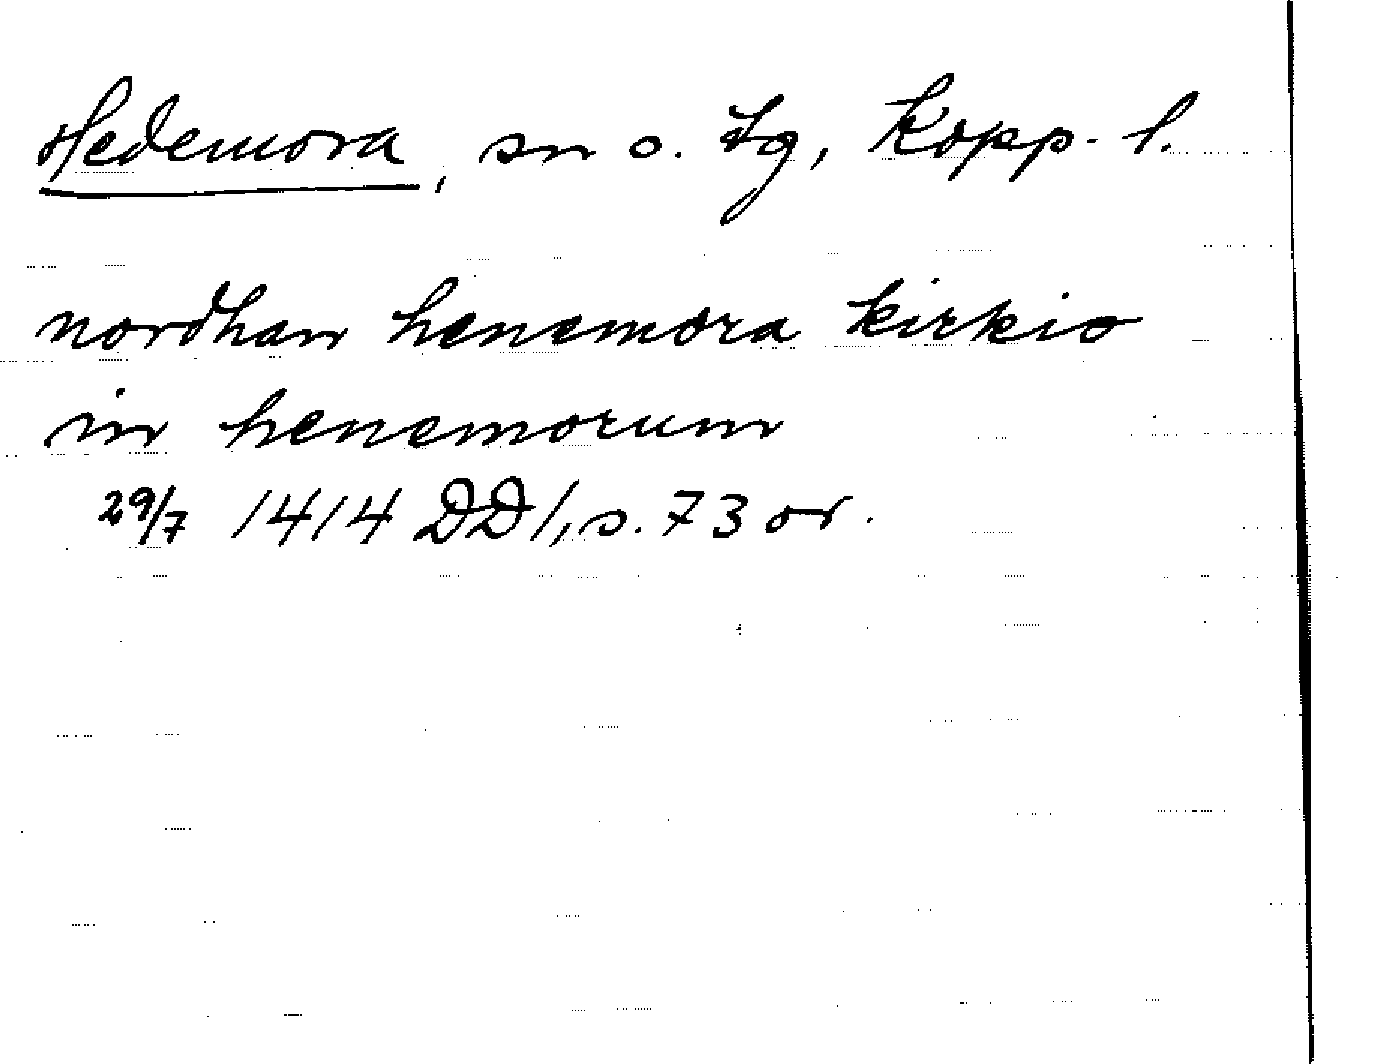 Hedemora, sn o. tg, Kopp. l.
nordhan henemora kirkio
in henemorum
29/7 1414 DD 1, s. 73 or.